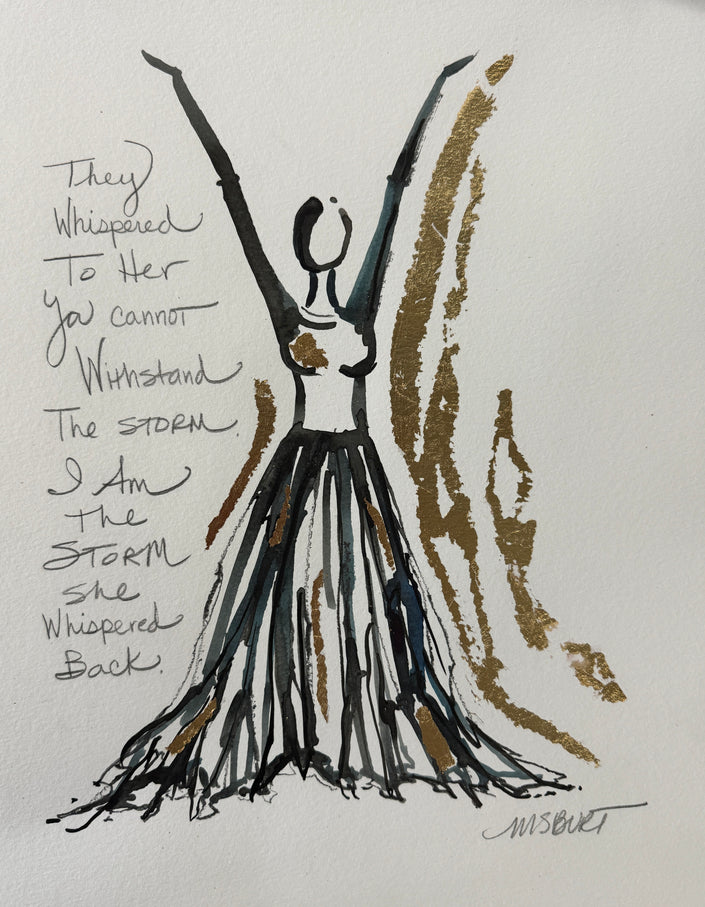 They
Whispered
To Her
You cannot
Withstand
The STORM.
I Am
The
STORM
She
Whispered
Back.
MSBURT